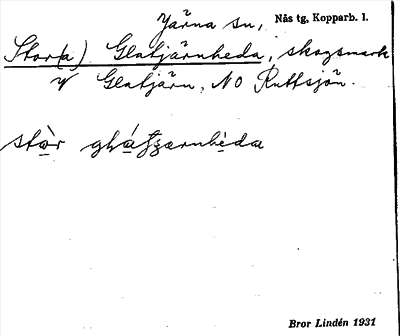 Järna sn, Nås tg, Kopparb. l.
Stor(a) Glatjärnheda, skogsmark
v Glatjärn, NO Ruttsjön.
stòr
Bror Lindén 1931